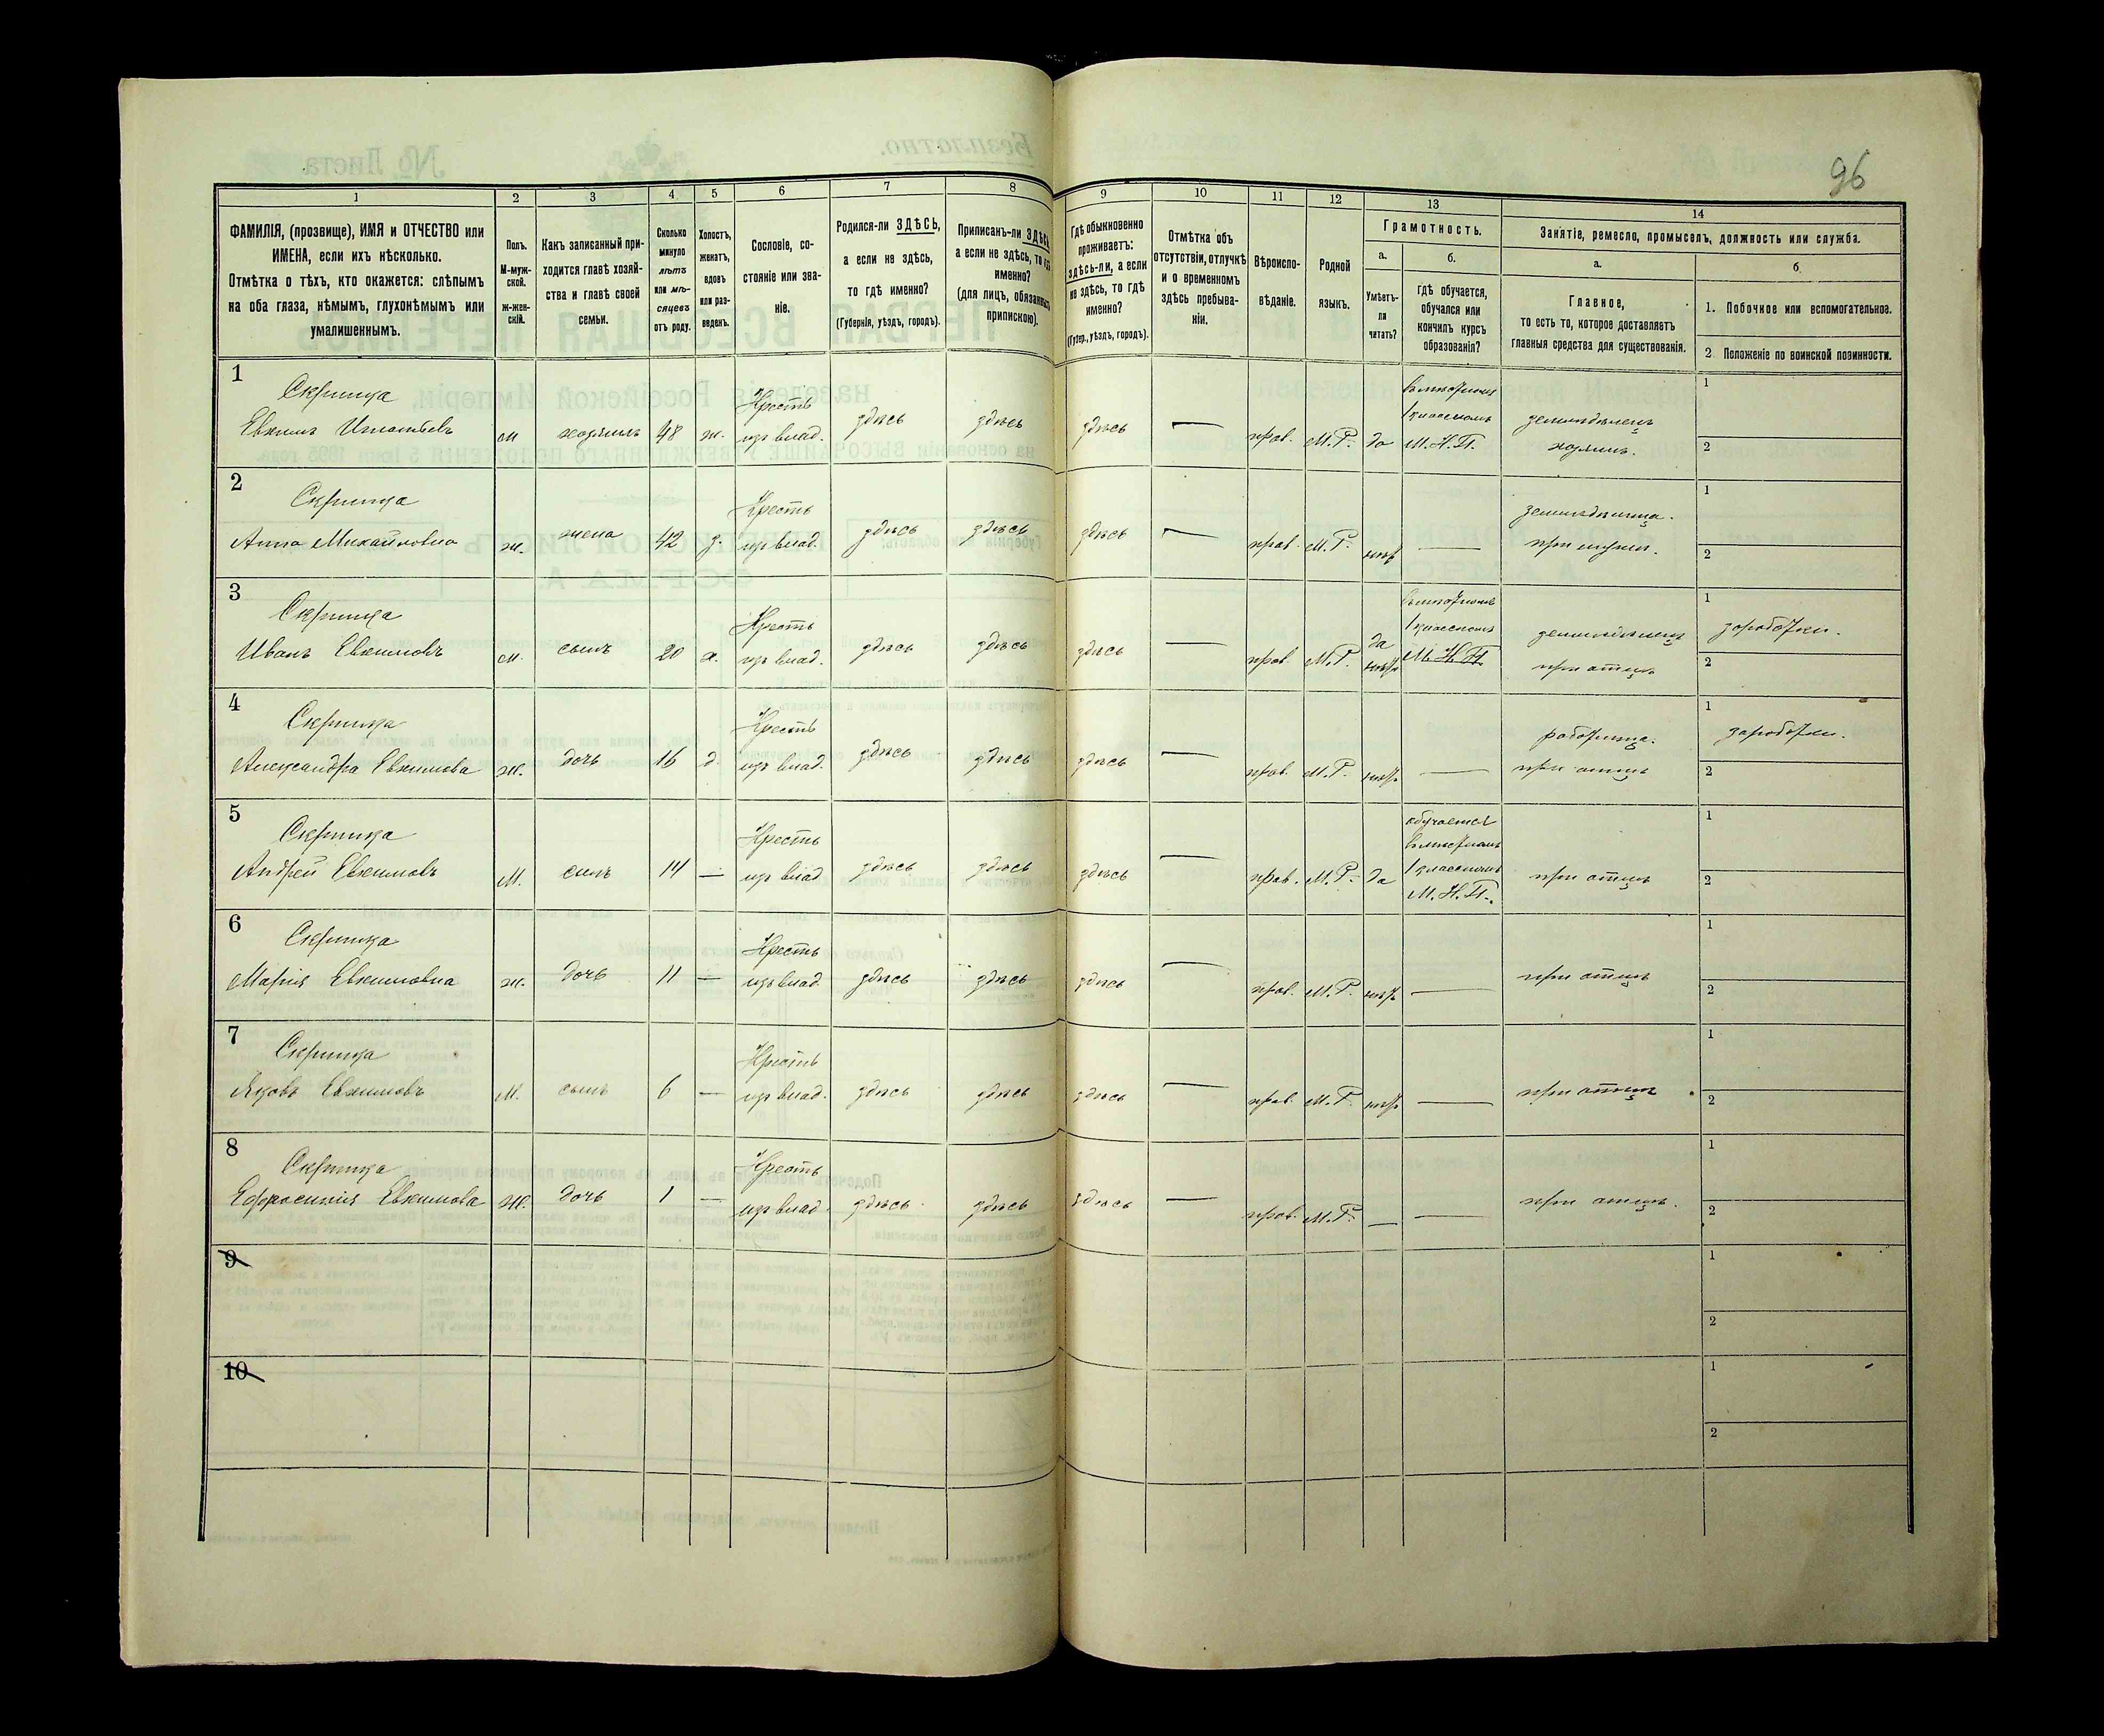 96
1
2
3
4
5
6
7
8
9
10
11
12
13
14
ФАМИЛІЯ, (прозвище), ИМЯ и ОТЧЕСТВО или
ИМЕНА, если ихъ нѣсколько.
Отмѣтка о тѣхъ, кто окажется: слѣпымъ
на оба глаза, нѣмымъ, глухонѣмымъ или
умалишеннымъ.
Полъ.
М-муж-
ской.
ж-жен-
скій.
Какъ записанный при-
ходится главѣ хозяй-
ства и главѣ своей
семьи.
Сколько
минуло
лѣтъ
или мѣ-
сяцевъ
отъ роду.
Холостъ,
женатъ,
вдовъ
или раз-
веденъ.
Сословіе, со-
стояніе или зва-
ніе.
Родился-ли ЗДѢСЬ,
а если не здѣсь,
то гдѣ именно?
(Губернія, уѣздъ, городъ).
Приписанъ-ли ЗДѢСЬ,
а если не здѣсь, то гдѣ
именно?
(для лицъ, обязанныхъ
припискою).
Гдѣ обыкновенно
проживаетъ:
здѣсь-ли, а если
не здѣсь, то гдѣ
именно?
(Губер., уѣздъ, городъ).
Отмѣтка объ
отсутствіи, отлучкѣ
и о временномъ
здѣсь пребыва-
ніи.
Вѣроиспо-
вѣданіе.
Родной
языкъ.
Грамотность.
а.
Умѣетъ-
ли
читать?
б.
Гдѣ обучается,
обучался или
кончилъ курсъ
образованія?
Занятіе, ремесло, промыселъ, должность или служба.
а.
Главное,
то есть то, которое доставляетъ
главныя средства для существованія.
б.
1. Побочное или вспомогательное.
2 Положеніе по воинской повинности.
1
Скрипка
Евкимъ Игнатьевъ м хозяинъ 48 ж. Крестъ
изъ влад. здѣсь здѣсь здѣсь — прав. М.Р. да
1 классномъ
М.Н.П.
земледѣлецъ
хозяинъ.
1
2
2
Скрипка
Анна Михайловна ж. жена 42 з. Крестъ
изъ влад. здѣсь здѣсь здѣсь — прав. М.Р. нѣтъ —
земледѣлица.
при мужѣ.
1
2
3
Скрипка
Иванъ Евкимовъ м. сынъ 20 х. Крестъ
изъ влад. здѣсь здѣсь здѣсь — прав. М.Р. да
нѣтъ
1 классномъ
М.Н.П.
земледѣлецъ
при отцѣ
1 заработки.
2
4
Скрипка
Александра Евкимова ж. дочь 16 д. Крестъ
изъ влад. здѣсь здѣсь здѣсь — прав. М.Р. нѣтъ —
работница.
при отцѣ
1 заработки.
2
5
Скрипка
Андрей Евкимовъ М. сынъ 14 — Крестъ
изъ влад здѣсь здѣсь здѣсь — прав. М.Р. да
обучается
1 классномъ
М.Н.П.
при отцѣ
1
2
6
Скрипка
Марія Евкимовна ж. дочь 11 — Крестъ
изъ влад здѣсь здѣсь здѣсь — прав. М.Р. нѣтъ —
при отцѣ
1
2
7
Скрипка
Яковъ Евкимовъ М. сынъ 6 — Крестъ
изъ влад. здѣсь здѣсь здѣсь — прав. М.Р. нѣтъ —
при отцѣ
1
2
8
Скрипка
Ефросинія Евкимова ж. дочь 1 — Крестъ
изъ влад. здѣсь здѣсь здѣсь — прав. М.Р. — —
при отцѣ.
1
2
9
1
2
10
1
2